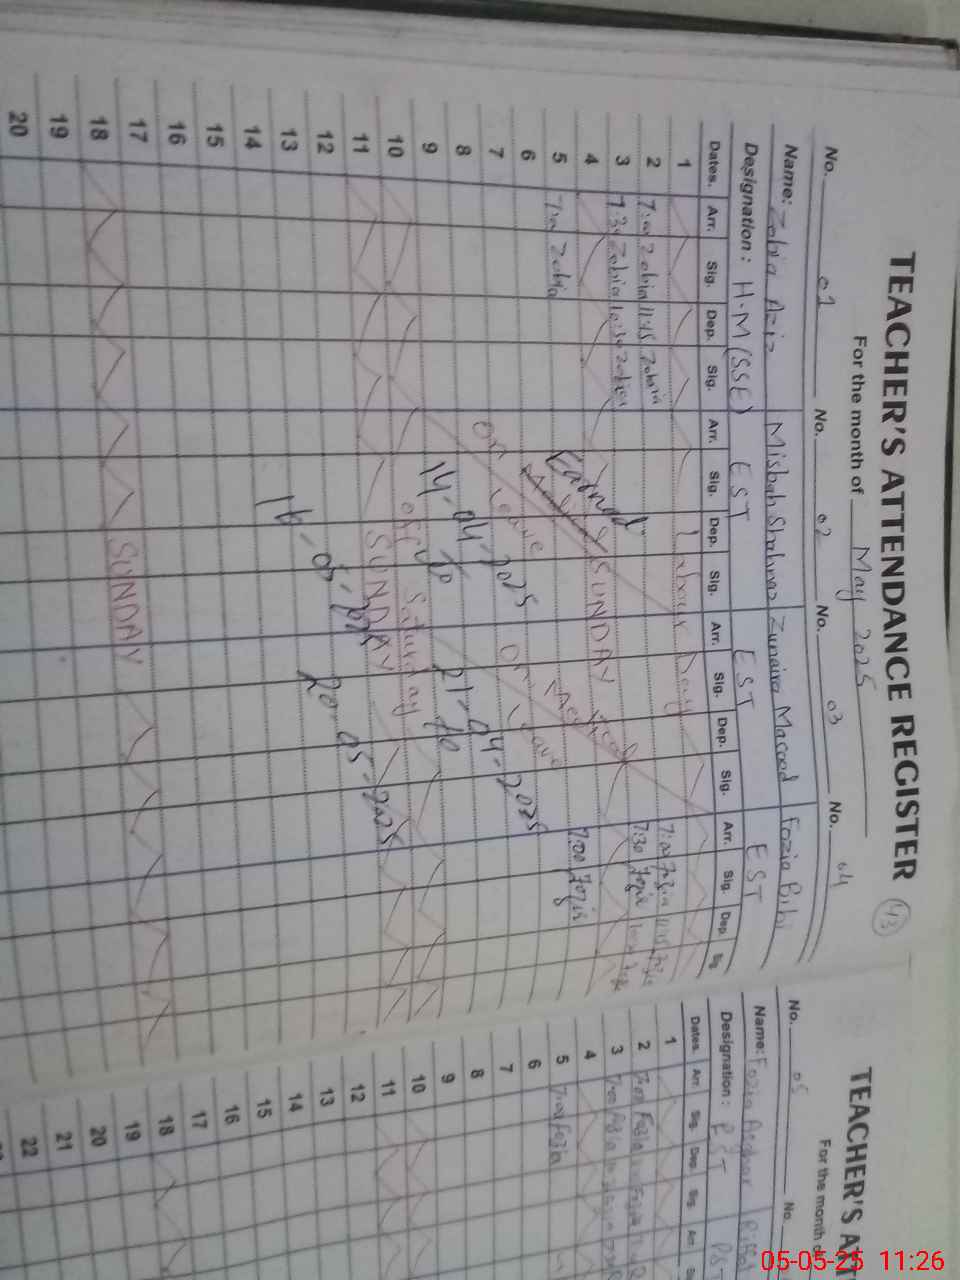 TEACHER'S ATTENDANCE REGISTER 43
For the month of May 2025
No. 01 No. 02 No. 03 No. 04
Name: Zobia Aziz Misbah Shahnaz Zunaira Masood Fozia Bibi
Designation: H.M (SSE) EST EST EST
Dates. Arr. Sig. Dep. Sig. Arr. Sig. Dep. Sig. Arr. Sig. Dep. Sig. Arr. Sig. Dep. Sig.
1 Labour Day
2 7:00 Zobia 11:45 Zobia 7:00 Fozia 11:45
3 7:30 Zobia 10:30 Zobia 7:30 Fozia
4 SUNDAY
5 7:00 Zobia Earned Medical 7:00 Fozia
6
7 On Leave On Leave
8 14-04-2025 21-04-2025
9 To To
10 off Saturday
11 SUNDAY
12 16-05-2025 20-05-2025
13
14
15
16
17
18 SUNDAY
19
20
TEACHER'S AT
For the month of
No. 05 No.
Name: Fozia Asghar Bibi
Designation: PST PST
Dates. Arr. Sig. Dep. Sig. Arr.
1
2 7:00 Fozia
3 7:00 Fozia
4
5 7:00 Fozia
6
7
8
9
10
11
12
13
14
15
16
17
18
19
20
21
22
05-05-25 11:26